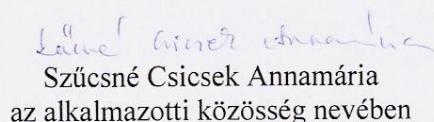 Szűcsné Csicsek Annamária
Szűcsné Csicsek Annamária
az alkalmazotti közösség nevében